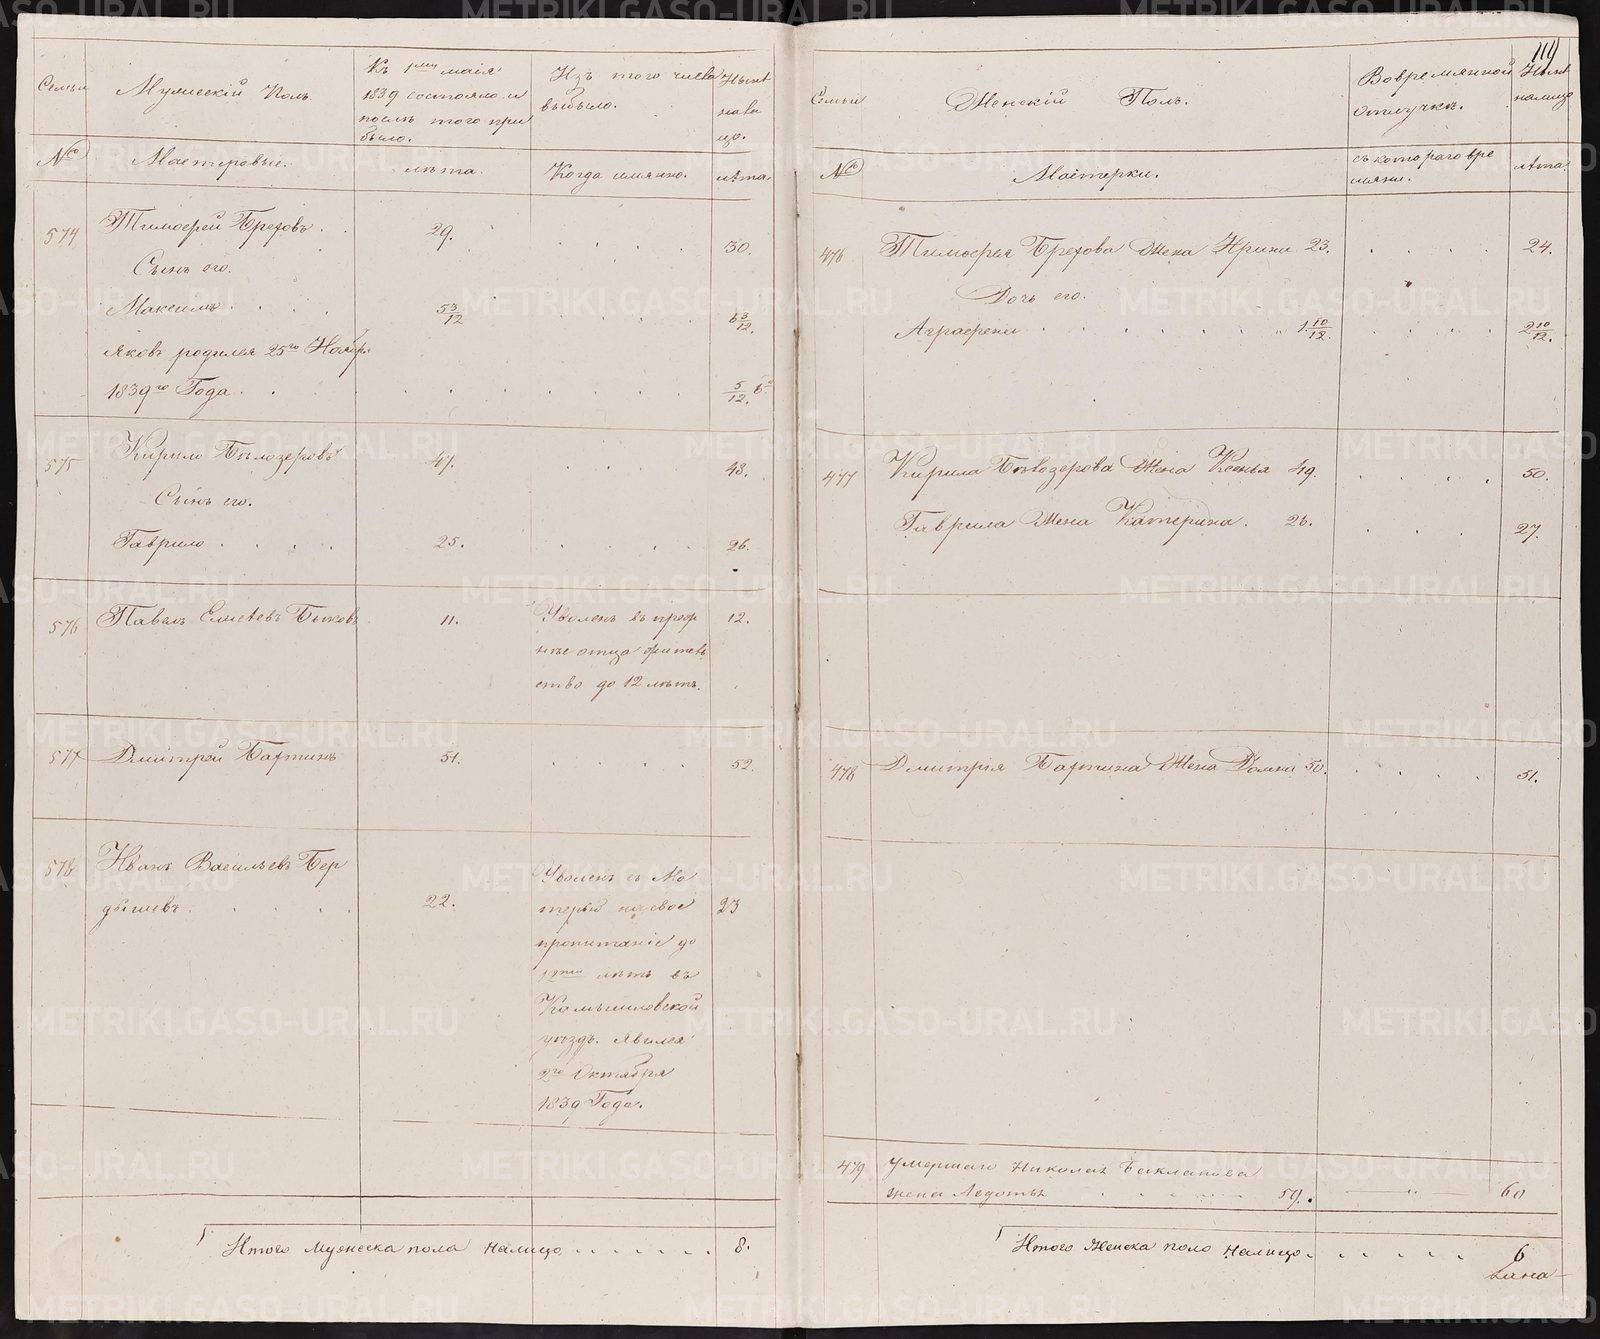 119
Семьи
Мужеский Полъ
Къ 1му маія
1839 состояло и
послѣ того при
было.
Изъ того числа
выбыло.
Нынѣ
нали
цо.
№
Мастеровые.
лѣта.
Когда имянно.
лѣта.
574
Тимофей Брехов.
29.
30.
Сынъ его.
Максимъ
5 3/12
6 3/12.
Яковъ родился 25го Ноябр
1839го Года
5/12.
575
Кирило Бѣлозеровъ
47.
48.
Сынъ его.
Гаврило
25.
26.
576
Павелъ Елисѣевъ Быковъ
11.
Уволенъ въ
отца
ство до 12 лѣтъ.
12.
577
Дмитрей
51.
52.
578
Иванъ Васильевъ Бер
дышевъ
22.
Уволенъ съ Ма
терью на свое
пропитаніе до
лѣтъ въ
Камышловской
уѣздъ. Явился
2го Октября
1839 Года.
23
Итого Мужеска пола налицо
8.
Семьи
Женскій Полъ.
Вовремянной
отлучкѣ.
Нынѣ
налицо
№
Мастерки.
съ котораго вре
мяни.
лѣта.
476
Тимофея Брехова Жена Ирина 23.
24.
Дочь его.
Аграфена
1 10/12.
2 10/12.
477
Кирила Бѣлозерова Жена Ксенья 49.
50.
Гаврила Жена Катерина. 26.
27.
478
Дмитрія Жена Домна 50.
51.
479
Умершаго Николая Бакланова
жена Ѳедотья
59.
60
Итого Женска пола налицо.
6